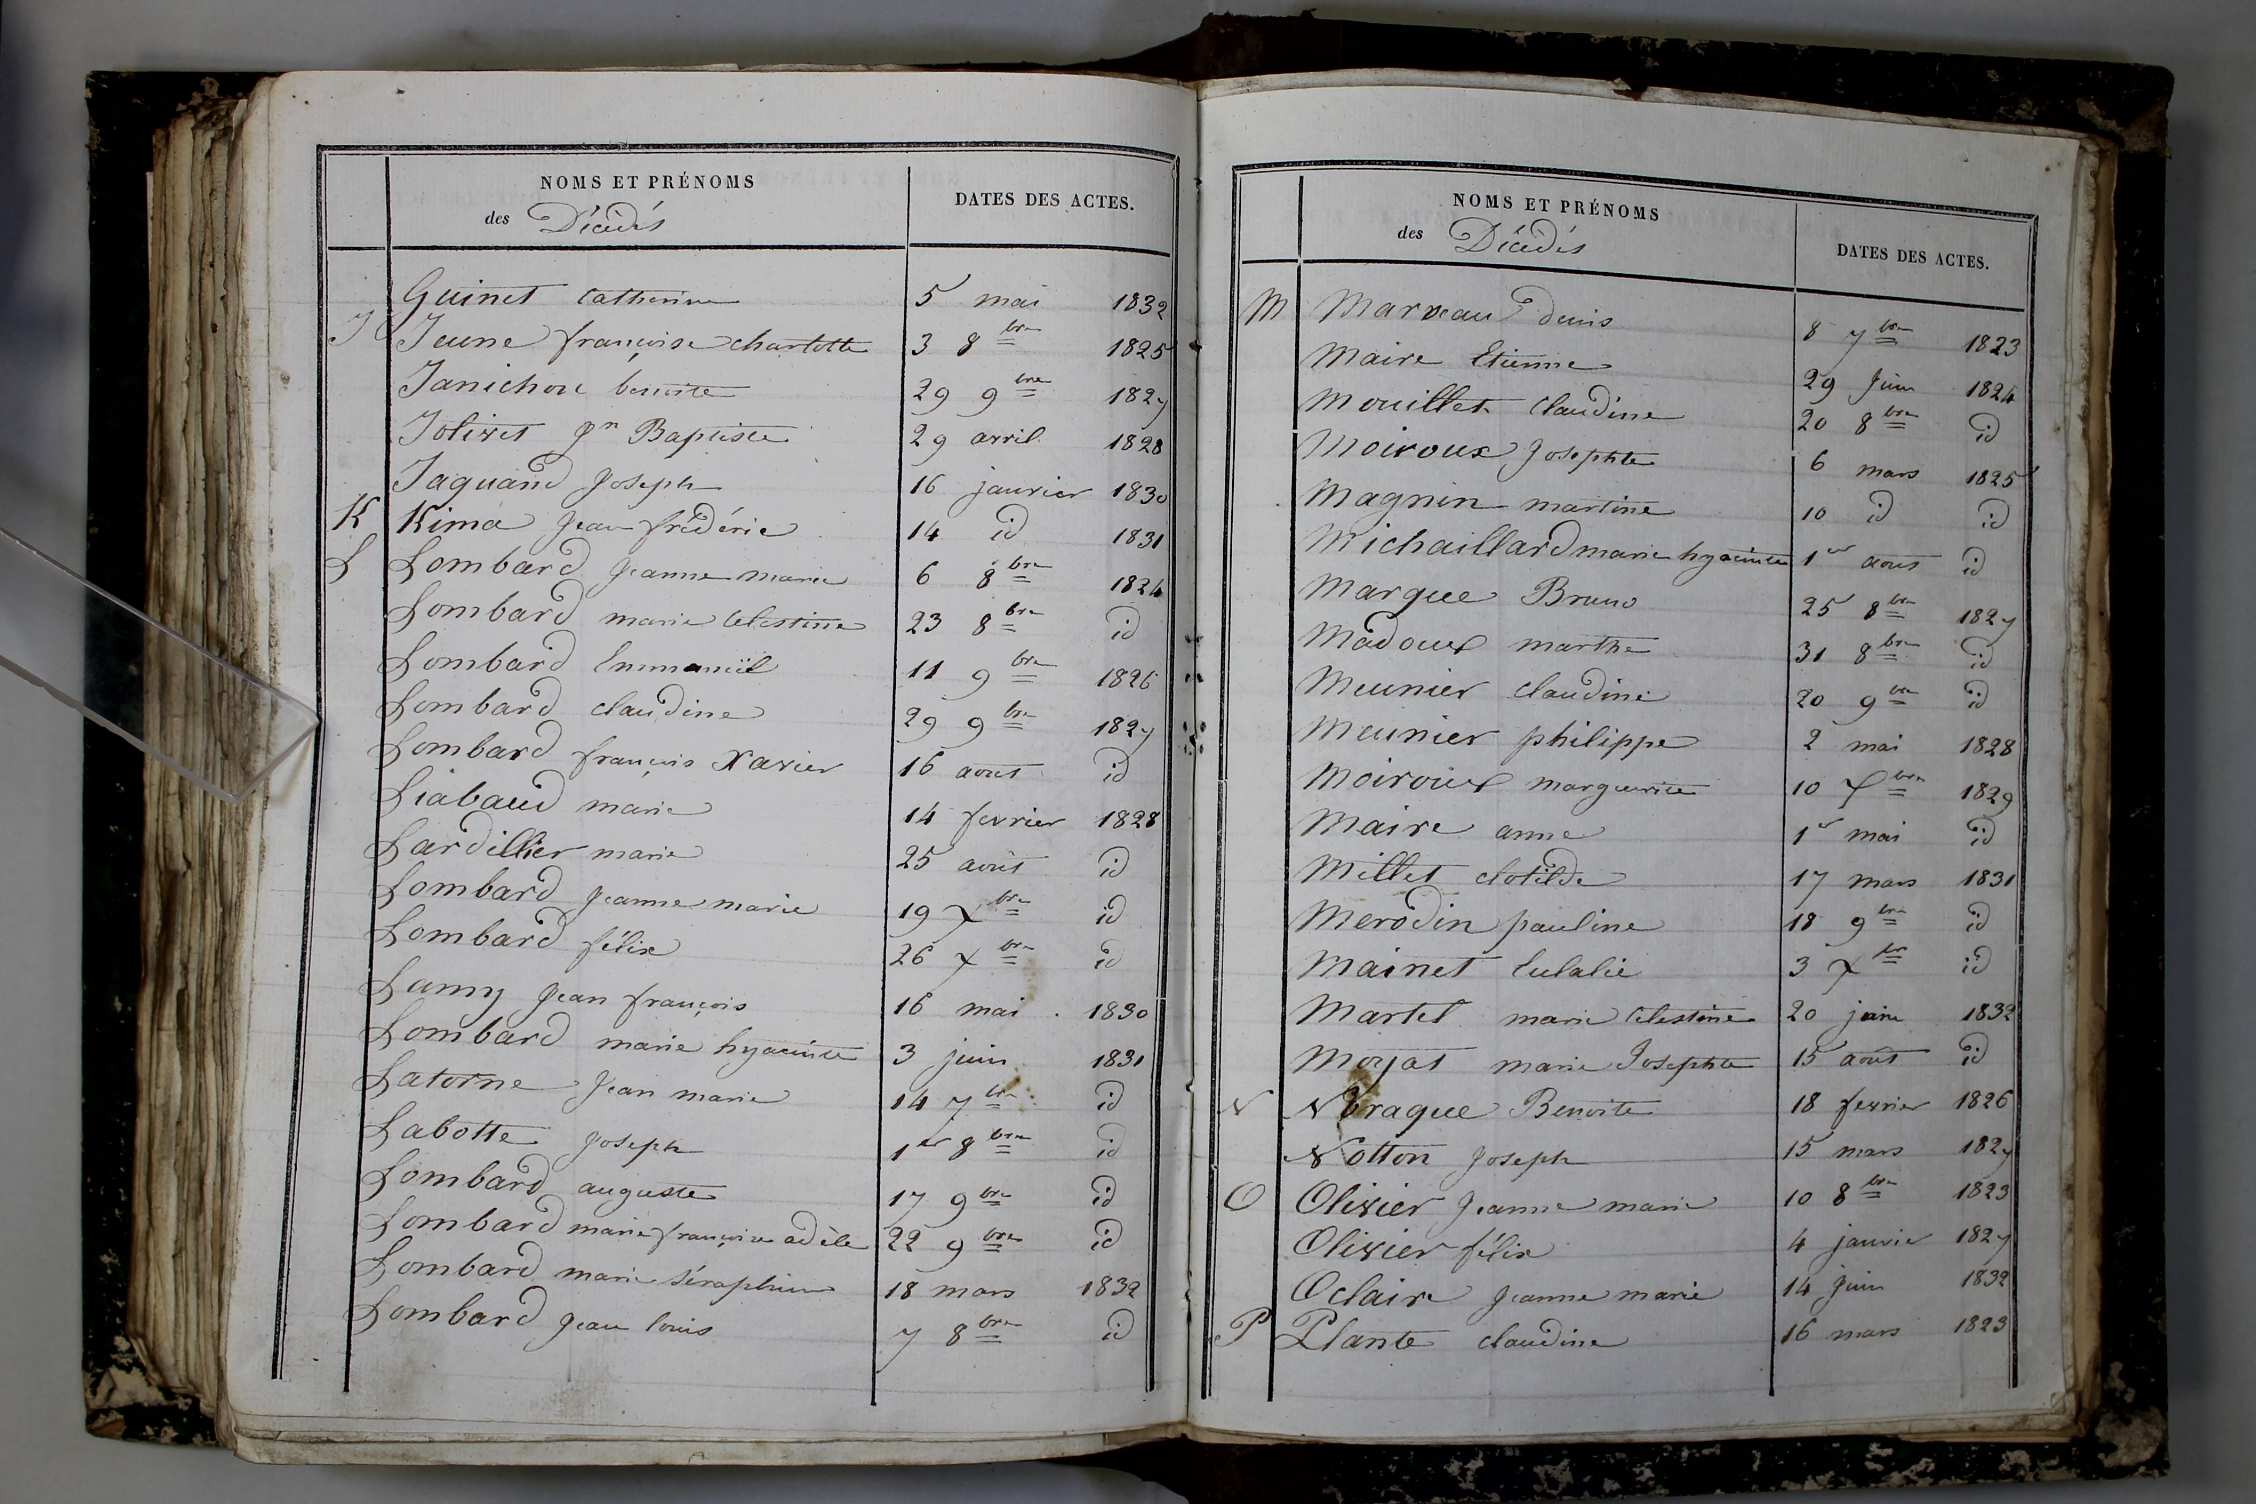 NOMS ET PRÉNOMS
des Décédés
DATES DES ACTES.
Guinet Catherine 5 mai 1832
J Jeune françoise charlotte 3 8bre 1825
Janichon benoite 29 9bre 1827
Jolivet Jn Baptiste 29 avril 1828
Jaquand Joseph 16 janvier 1830
K Kima Jean frédéric 14 id 1831
L Lombard Jeanne marie 6 8bre 1824
Lombard marie Celestine 23 8bre id
Lombard Emmanuël 11 9bre 1826
Lombard claudine 29 9bre 1827
Lombard françois Xavier 16 aout id
Liabaud marie 14 fevrier 1828
Lardillier marie 25 aout id
Lombard Jeanne marie 19 7bre id
Lombard félix 26 7bre id
Lamy Jean françois 16 mai 1830
Lombard marie hyacinte 3 juin 1831
Latorne Jean marie 14 7bre id
Labotte Joseph 1er 8bre id
Lombard auguste 17 9bre id
Lombard marie françoise adèle 22 9bre id
Lombard marie Séraphine 18 mars 1832
Lombard Jean louis 7 8bre id
NOMS ET PRÉNOMS
des Décédés
DATES DES ACTES.
M Marveau denis 8 7bre 1823
Maire Etienne 29 Juin 1824
Mouillet Claudine 20 8bre id
Moiroux Josephte 6 mars 1825
Magnin martine 10 id id
Michaillard marie hyacinte 1er aout id
Marque Bruno 25 8bre 1827
Madoux marthe 31 8bre id
Meunier claudine 20 9bre id
Meunier philippe 2 mai 1828
Moiroux marguerite 10 7bre 1829
Maire anne 1er mai id
Millet clotilde 17 mars 1831
Merodin pauline 18 9bre id
Mainet Eulalie 3 7bre id
Martel marie Celestine 20 juin 1832
Moyat marie Josephte 15 août id
N Neraque Benoite 18 fevrier 1826
Notton Joseph 15 mars 1827
O Olivier Jeanne marie 10 8bre 1823
Olivier félix 4 janvier 1827
Oclaire Jeanne marie 14 Juin 1832
P Plante claudine 16 mars 1823